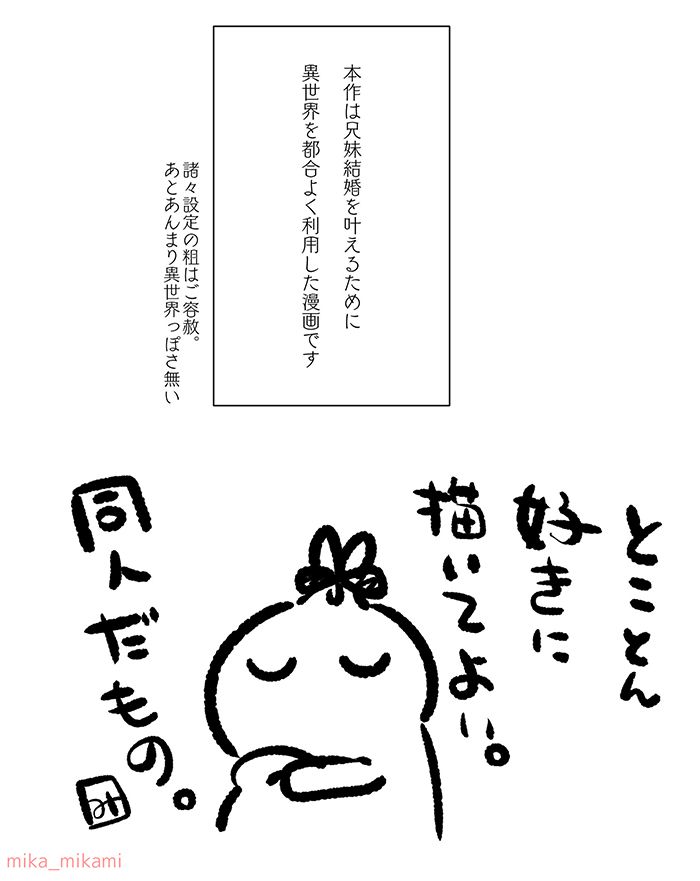 本作は兄妹結婚を叶えるために
異世界を都合よく利用した漫画です
諸々設定の粗はご容赦。
あとあんまり異世界っぽさ無い
とことん
好きに
描いてよい。
同人だもの。
みか
mika_mikami